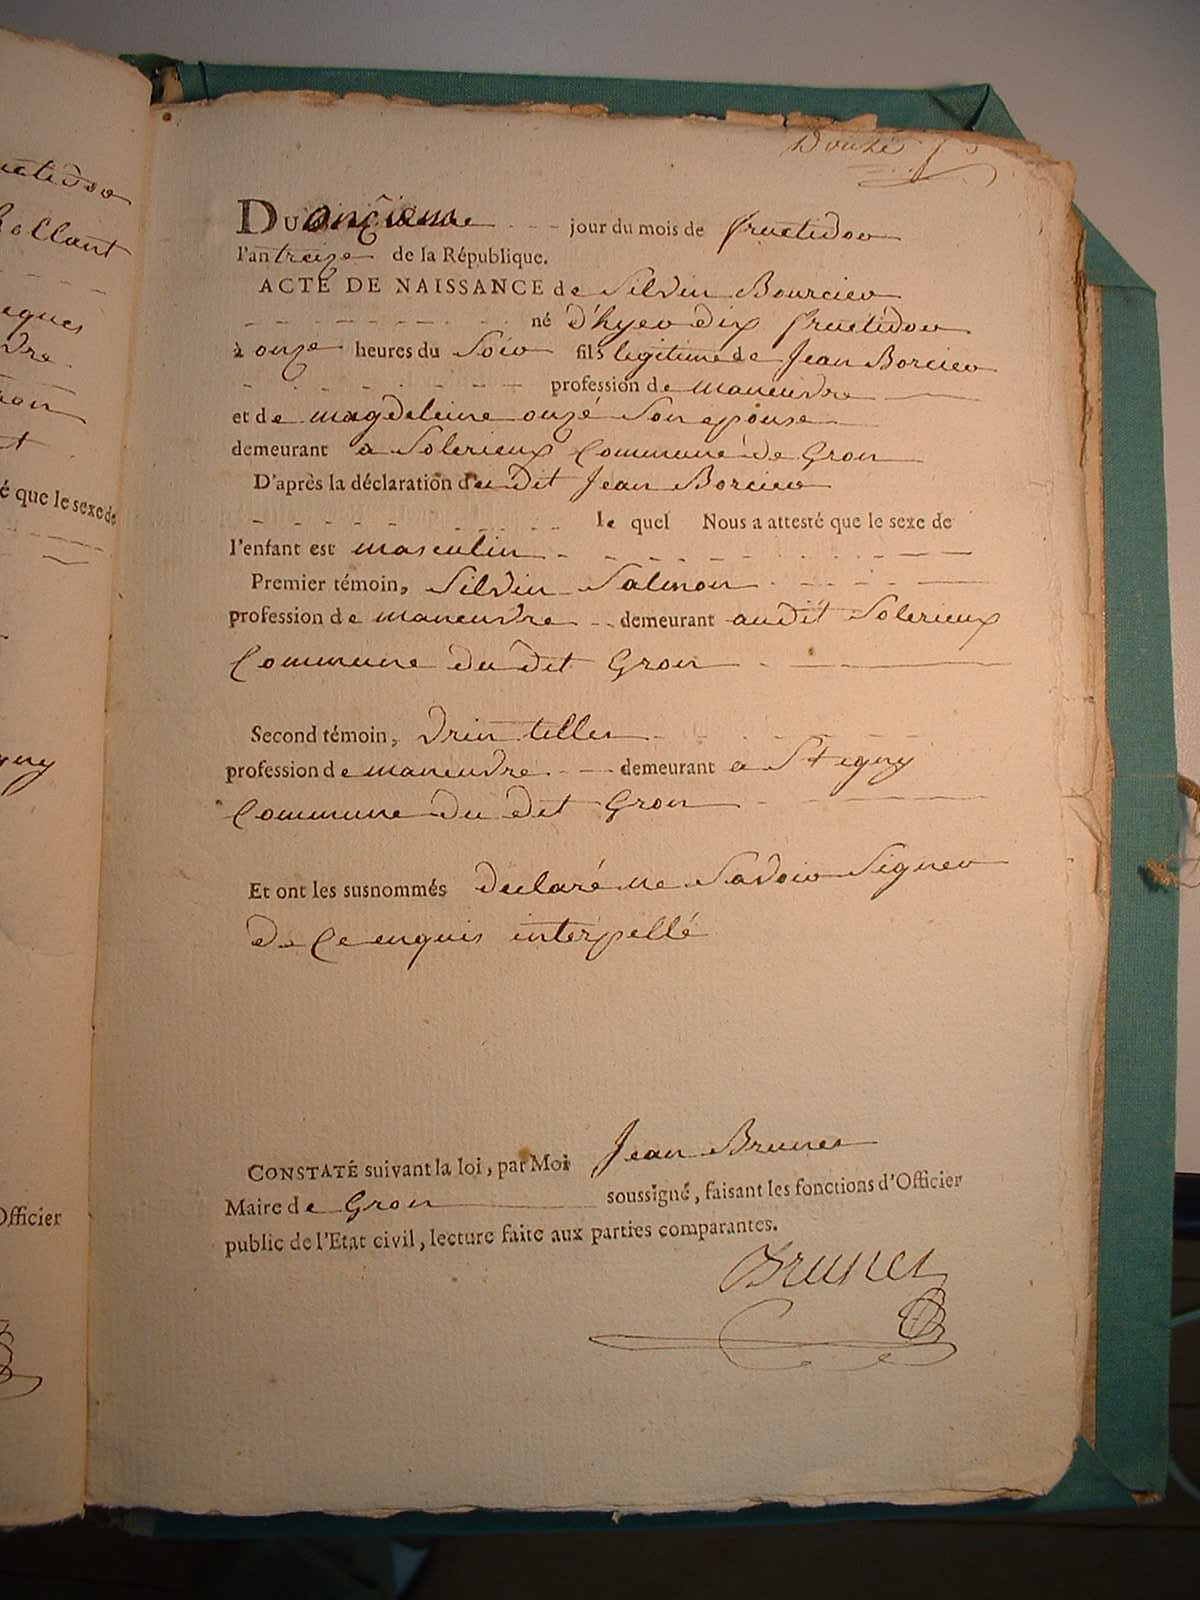 uctidor
Rollant
eques
dre
ron
t
é que le sexe de
gny
Officier
Douzé
DU onzieme jour du mois de fructidor
l'an treize de la République.
ACTE DE NAISSANCE de Silvin Bourcier
né d'hyer dix fructidor
à onze heures du Soir fils legitime de Jean Borcier
profession de maneuvre
et de magdeleine ouzé Son epouse
demeurant a Solerieux Commune de Gron
D'après la déclaration du dit Jean Borcier
le quel Nous a attesté que le sexe de
l'enfant est masculin
Premier témoin, Silvin Salmon
profession de maneuvre demeurant audit Solerieux
Commune du dit Gron
Second témoin, Vrin tellier
profession de maneuvre demeurant a Stigny
Commune du dit Gron
Et ont les susnommés declaré ne Savoir Signer
de Ce enquis interpellé
CONSTATÉ suivant la loi, par Moi Jean Brunet
Maire de Gron soussigné, faisant les fonctions d'Officier
public de l'Etat civil, lecture faite aux parties comparantes.
Brunet